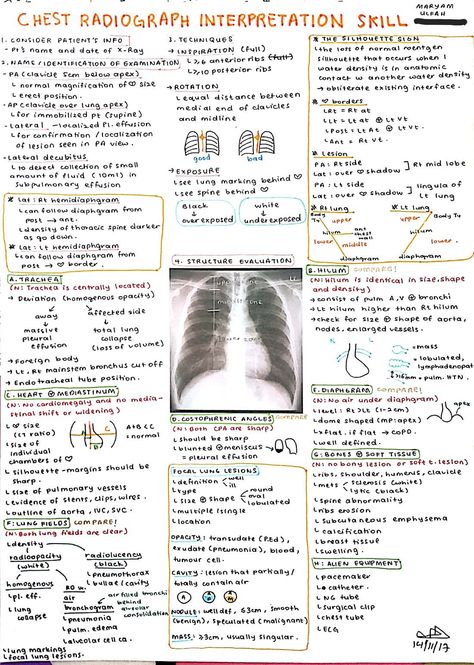 CHEST RADIOGRAPH INTERPRETATION SKILL
MARYAM
1. CONSIDER PATIENT'S INFO
- Pt's name and date of X-Ray
2. NAME/IDENTIFICATION OF EXAMINATION
- PA (clavicle 5cm below apex)
↳ normal magnification of ♡ size
↳ erect position.
- AP (clavicle over lung apex)
↳ for immobilized pt (supine)
- Lateral - localized Pl. effusion
↳ for confirmation / localization
of lesion seen in PA view.
- Lateral decubitus
↳ to detect collection of small
amount of fluid (10ml) in
subpulmonary effusion
* lat: Rt hemidiaphgram
↳ can follow diaphgram from
post → ant.
↳ density of thoracic spine darker
as go down.
* lat: Lt hemidiaphgram
↳ can follow diaphgram from
post → ♡ border.
A. TRACHEA
(N: Trachea is centrally located)
→ Deviation (homogenous opacity)
away
affected side
massive
pleural
effusion
total lung
collapse
(loss of volume)
→ Foreign body
→ Lt, Rt mainstem bronchus cut off
→ Endotracheal tube position.
C. HEART ⊕ MEDIASTINUM
(N: No cardiomegaly and no media-
stinal shift or widening)
↳ ♡ size
(CT ratio)
↳ size of
individual
chambers of ♡
A+B<C
= normal
↳ silhouette - margins should be
sharp.
↳ size of pulmonary vessels
↳ evidence of stents, clips, wires.
↳ outline of aorta, IVC, SVC.
F: LUNG FIELDS COMPARE!
(N: Both lung fields are clear)
↳ density
radioopacity
(white)
radiolucency
(black)
↳ pneumothorax
↳ bullae/cavity
homogenous
↳ pl. eff.
↳ lung
collapse
air
bronchogram
↳ pneumonia
↳ pulm. edema
↳ alveolar cell ca.
air filled bronchi
behind
alveolar
consolidation
↳ lung markings
↳ focal lung lesions.
3. TECHNIQUES
→ INSPIRATION (full)
↳ ≥6 anterior ribs
↳ ≥10 posterior ribs
→ ROTATION
↳ equal distance between
medial end of clavicles
and midline
good
bad
→ EXPOSURE
↳ see lung marking behind ♡
↳ see spine behind ♡
Black
↳ overexposed
white
↳ underexposed
4. STRUCTURE EVALUATION
D. COSTOPHRENIC ANGLES COMPARE
(N: Both CPA are sharp)
↳ should be sharp
↳ blunted ⊕ meniscus
= pleural effusion
FOCAL LUNG LESIONS
↳ definition well
ill
↳ type
↳ size ⊕ shape round
oval
lobulated
↳ multiple/single
↳ location
OPACITY: transudate (PEd),
exudate (pneumonia), blood,
tumour cell.
CAVITY: lesion that partially/
totally contain air
NODULE: well def, <3cm, smooth
(benign), speculated (malignant)
MASS: ≥3cm, usually singular.
* THE SILHOUETTE SIGN
↳ the loss of normal roentgen
silhouette that occurs when 1
water density is in anatomic
contact w another water density
→ obliterate existing interface.
* ♡ borders
↳ Rt = Rt at
↳ Lt = Lt at ⊕ Lt Vt
↳ Post = Lt At ⊕ Lt Vt.
↳ Ant = Rt vt.
* Lesion
PA: Rt side
Lat: over ♡ shadow
Rt mid lobe
PA: Lt side
Lat: over ♡ shadow
lingula of
Lt lung
* Rt lung
* Lt lung
upper
hilum
lower
middle
diaphgram
ant
chest
wall
upper
hilum
lower
diaphgram
B. HILUM COMPARE!
(N: Hilum is identical in size, shape
and density)
→ consist of pulm A, V ⊕ bronchi
→ Lt hilum higher than Rt hilum
→ check for size ⊕ shape of aorta,
nodes, enlarged vessels.
= mass
= lobulated,
lymphadenopat
>16mm = pulm. HTN.
E. DIAPHGRAM COMPARE!
(N: No air under diaphgram)
↳ level: Rt > Lt (1-2cm)
↳ dome shaped (MP: apex)
↳ flat: if flat → COPD.
↳ well defined.
apex
G: BONES ⊕ SOFT TISSUE
(N: no bony lesion or soft t. lesion)
↳ ribs, shoulder, humerus, clavicle
↳ mets sclerosis (white)
lytic (black)
↳ spine abnormality
↳ ribs erosion
↳ subcutaneous emphysema
↳ calcification
↳ breast tissue
↳ swelling.
H: ALIEN EQUIPMENT
↳ pacemaker
↳ catheter.
↳ NG tube
↳ surgical clip
↳ chest tube
↳ ECG
14/11/17